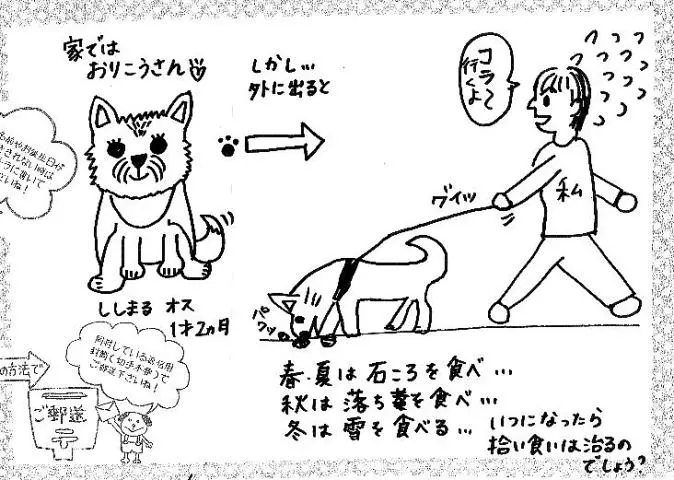 家では
おりこうさん
しかし…
外に出ると
コラ〜
行くよ
私
グイッ
パクッ
ししまる オス
1才2ヵ月
春・夏は 石ころを食べ…
秋は 落ち葉を食べ…
冬は 雪を食べる…
いつになったら
拾い食いは治るの
でしょう?
の方法で
ご郵送
同封している返信用
封筒(切手不要)で
ご郵送下さいね!